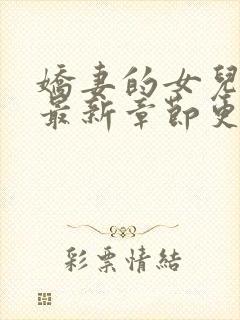 嬌妻的女兒
最新章節更
彩票情結